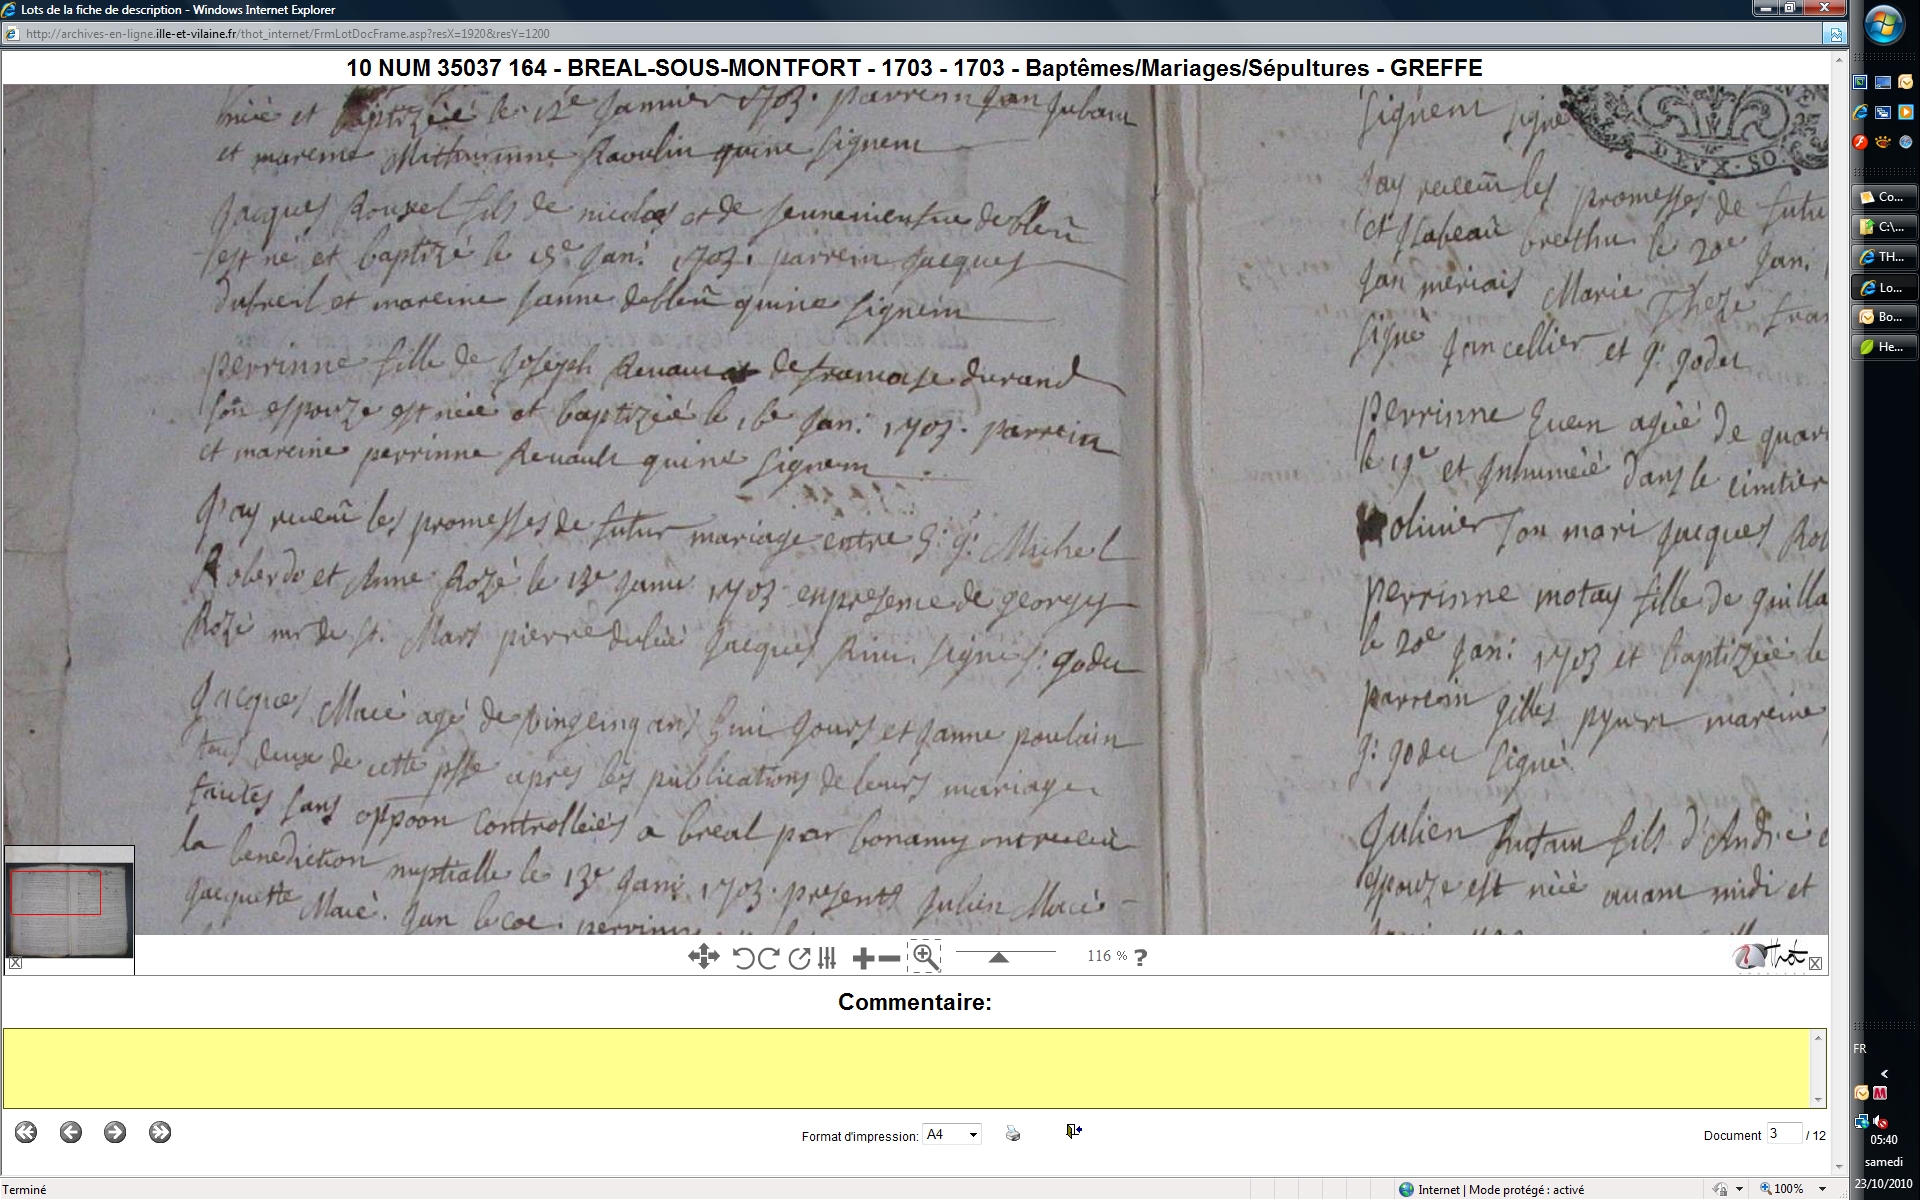 Lots de la fiche de description - Windows Internet Explorer
http://archives-en-ligne.ille-et-vilaine.fr/thot_internet/FrmLotDocFrame.asp?resX=1920&resY=1200
10 NUM 35037 164 - BREAL-SOUS-MONTFORT - 1703 - 1703 - Baptêmes/Mariages/Sépultures - GREFFE
et baptizéé le 12e Janvier 1703. parrein Jan
et mareine Mathurinne Raoulin quine signent
Jacques Rouxel fils de nicolas et de
est né et baptizé le 15e Jan: 1703. parrein Jacques
dubreil et mareine Janne quine signent
perrinne fille de Joseph Renault de francoise durand
son espouze est néé et baptizéé le 16e Jan: 1703. parrein
et mareine perrinne Renault quine signent
J'ay receu les promesses de futur mariage entre h: g: Michel
Roberdo et Anne Rozé le 13e Janv: 1703 en presence de georges
Rozé mr de st. Mars pierre Jacques signe g: godu
Jacques Macé agé de vingcinq ans et Janne poulain
tous deux de cette psse apres les publications de leurs mariage
faites sans oppoon controlleés a breal par bonamy ont receu
la benediction nuptialle le 13e Janv: 1703. presents Julien Macé
Jacquette Macé. Jan lecoc. perrinne
signent signé
DEVX·SO
J'ay receu les promesses de futu
et le 20e Jan:
Jan meriais Marie Theze fran
signé Jan cellier et g: godu
perrinne Euen agéé de quar
le 19e et Inhuméé dans le cimtier
olivier son mari Jacques Ro
perrinne motay fille de guilla
le 20e Jan: 1703 et baptizéé le
parrein gilles mareine
g: godu signé
Julien fils d'André
espouze est néé avant midi et
116 % ?
Thot
Commentaire:
Format d'impression: A4
Document 3 / 12
Terminé
Internet | Mode protégé : activé
100%
Co...
C:\...
TH...
Lo...
Bo...
He...
FR
05:40
samedi
23/10/2010